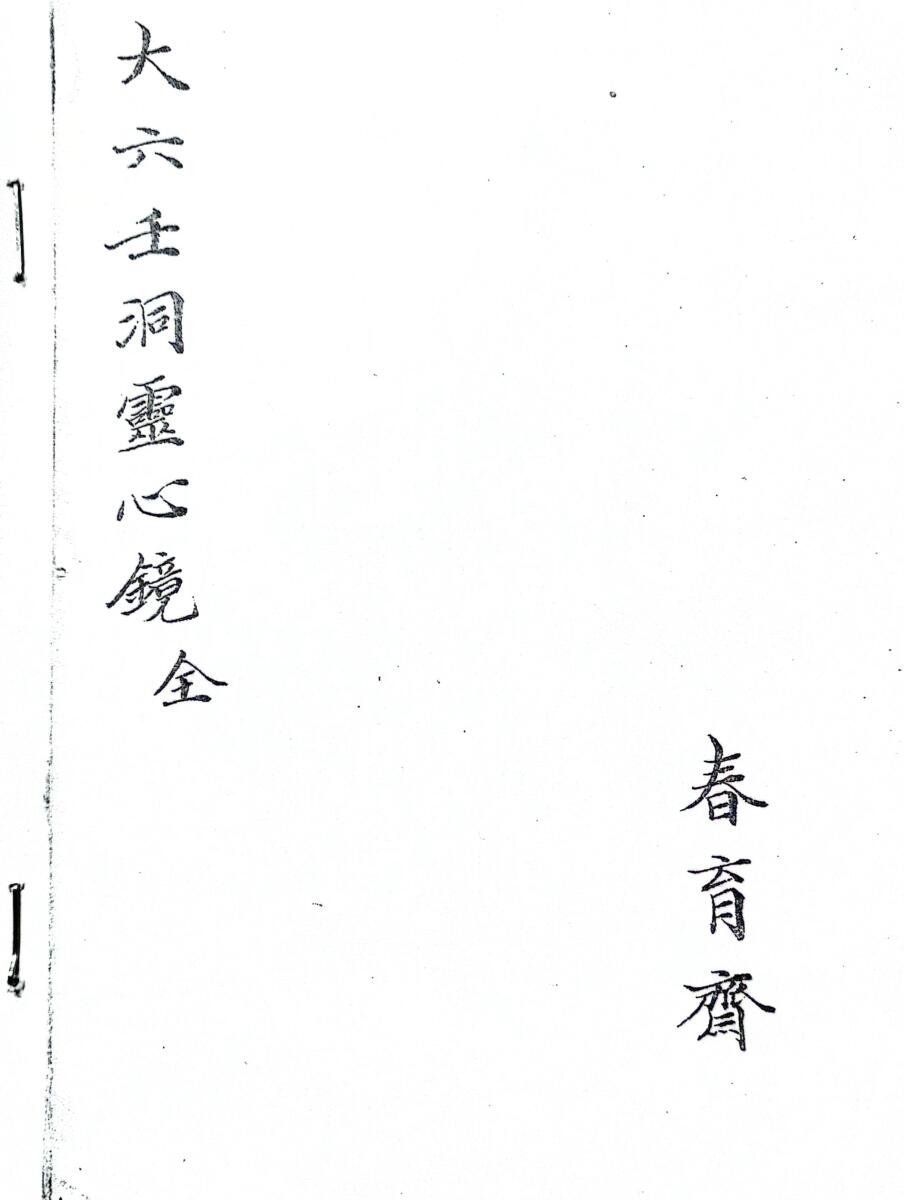 大六壬洞靈心鏡 全
春育齋